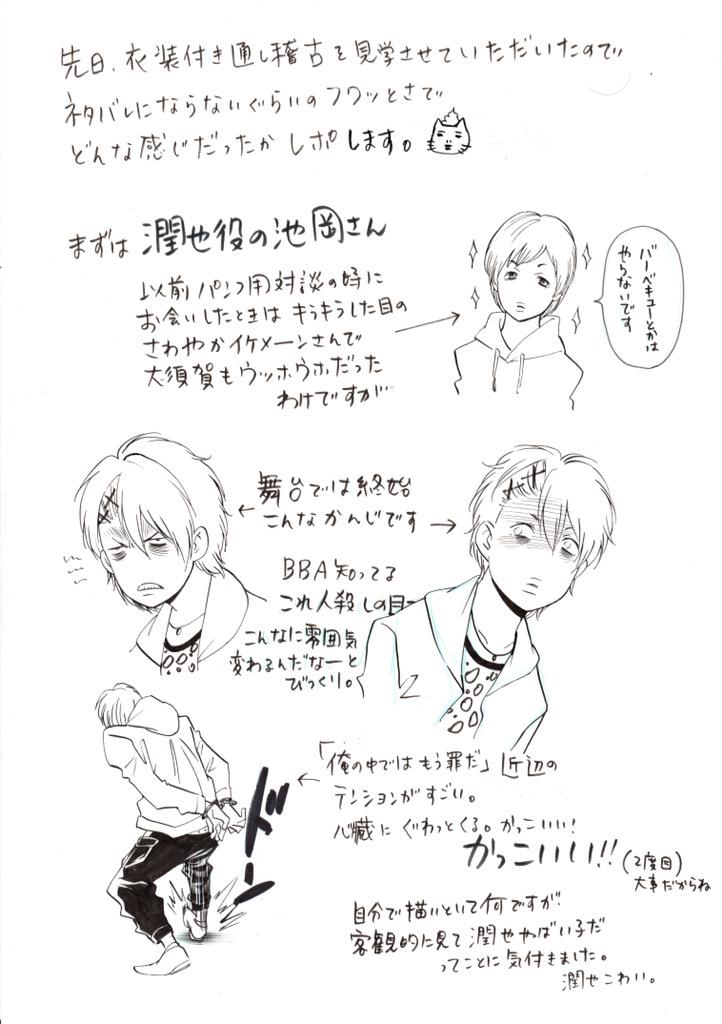 先日、衣装付き通し稽古を見学させていただいたので
ネタバレにならないぐらいのフワッとさで
どんな感じだったかレポします。
まずは 潤也役の池岡さん
以前パンフ用対談の時に
お会いしたときは キラキラした目の
さわやかイケメーンさんで
大須賀もウッホウホだった
わけですが
バーベキューとかは
やらないです
舞台では終始
こんなかんじです
BBA知ってる
これ人殺しの目ー
こんなに雰囲気
変わるんだなーと
びっくり。
ドーン
「俺の中ではもう罪だ」近辺の
テンションがすごい。
心臓にぐわっとくる。かっこいい!
かっこいい!!
(2度目)
大事だからね
自分で描いといて何ですが
客観的に見て潤也やばい子だ
ってことに気付きました。
潤也こわい。